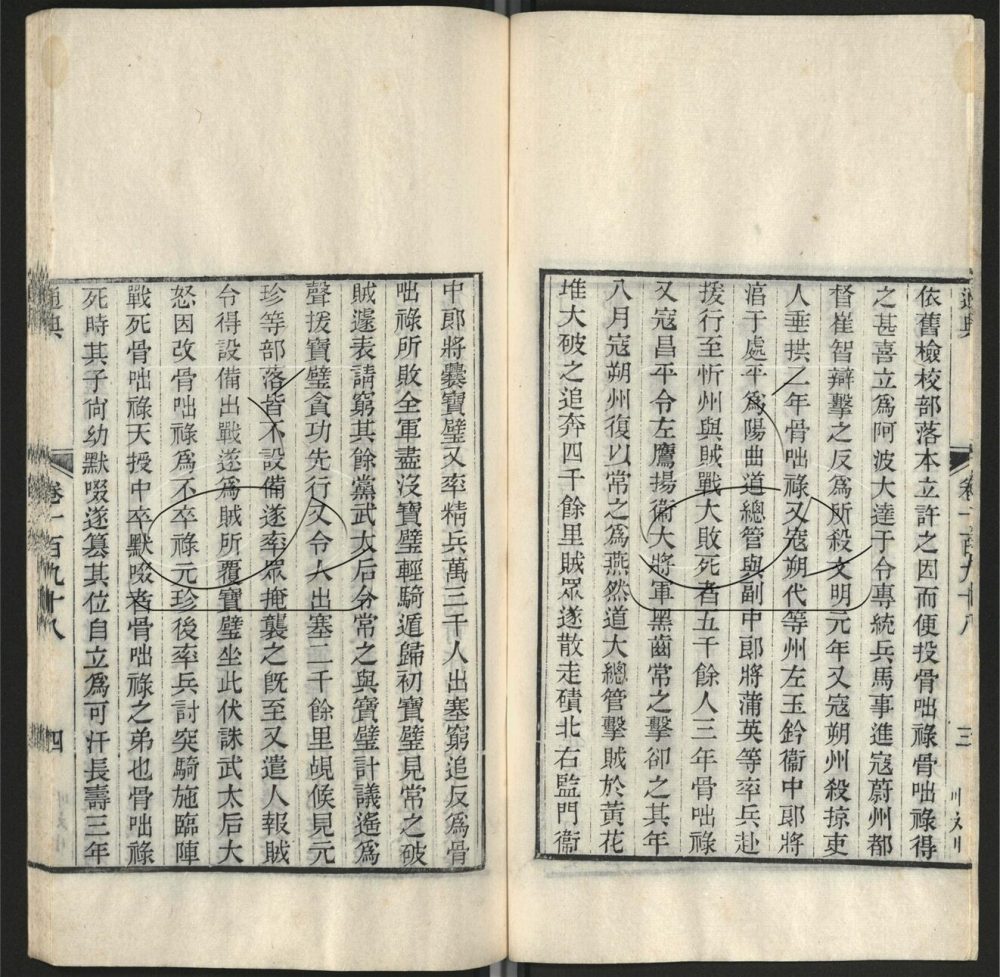 依舊檢校部落本立許之因而便投骨咄祿骨咄祿得
之甚喜立爲阿波大達于令專統兵馬事進寇蔚州都
督崔智辯擊之反爲所殺文明元年又寇朔州殺掠吏
人垂拱二年骨咄祿又寇朔代等州左玉鈐衞中郞將
湻于處平爲陽曲道總管與副中郞將蒲英等率兵赴
援行至忻州與賊戰大敗死者五千餘人三年骨咄祿
又寇昌平令左鷹揚衞大將軍黑齒常之擊卻之其年
八月寇朔州復以常之爲燕然道大總管擊賊於黃花
堆大破之追奔四千餘里賊眾遂散走磧北右監門衞
通典
卷一百九十八
三
中郞將爨寶璧又率精兵萬三千人出塞窮追反爲骨
咄祿所敗全軍盡沒寶璧輕騎遁歸初寶璧見常之破
賊遽表請窮其餘黨武太后令常之與寶璧計議遙爲
聲援寶璧貪功先行又令人出塞二千餘里覘候見元
珍等部落皆不設備遂率眾掩襲之旣至又遣人報賊
令得設備出戰遂爲賊所覆寶璧坐此伏誅武太后大
怒因改骨咄祿爲不卒祿元珍後率兵討突騎施臨陣
戰死骨咄祿天授中卒默啜者骨咄祿之弟也骨咄祿
死時其子尙幼默啜遂篡其位自立爲可汗長壽三年
通典
卷一百九十八
四